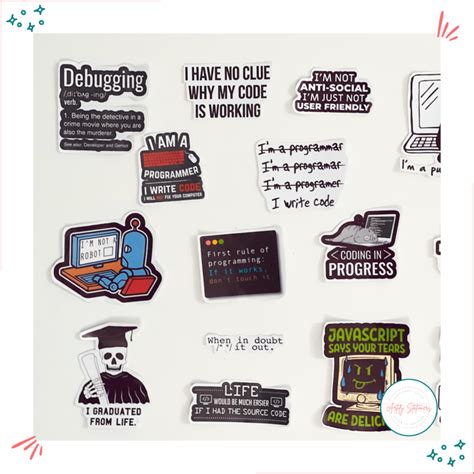 Debugging
verb.
1. Being the detective in a
crime movie where you are
also the murderer
See also: Developer and Genius
I HAVE NO CLUE
WHY MY CODE
IS WORKING
I'M NOT
ANTI-SOCIAL
I'M JUST NOT
USER FRIENDLY
I AM A
PROGRAMMER
I WRITE CODE
I WILL NOT FIX YOUR COMPUTER
I'm a programmar
I'm a programmar
I'm a programer
I write code
I'm a pu
I'M NOT A
ROBOT
First rule of
programming:
If it works,
don't touch it.
CODING IN
PROGRESS
I GRADUATED
FROM LIFE.
When in doubt
/**/ it out.
LIFE
WOULD BE MUCH EASIER
IF I HAD THE SOURCE CODE
JAVASCRIPT
SAYS YOUR TEARS
ARE DELIC